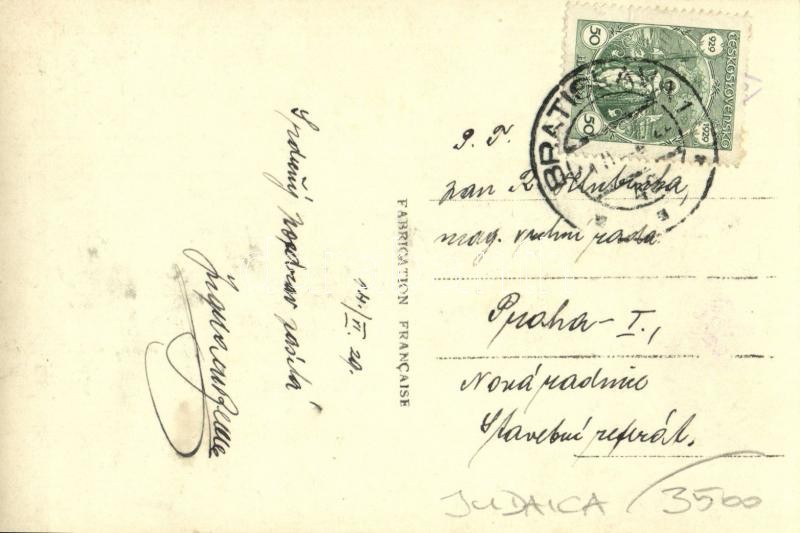 Srdečný pozdrav zasílá
14./VI. 29.
FABRICATION FRANÇAISE
ČESKOSLOVENSKO
50 50
929 1929
BRATISLAVA 1
P. T.
pan
mag. vrchní rada
Praha - I.,
Nová radnice
Stavební referát.
JUDAICA 3500